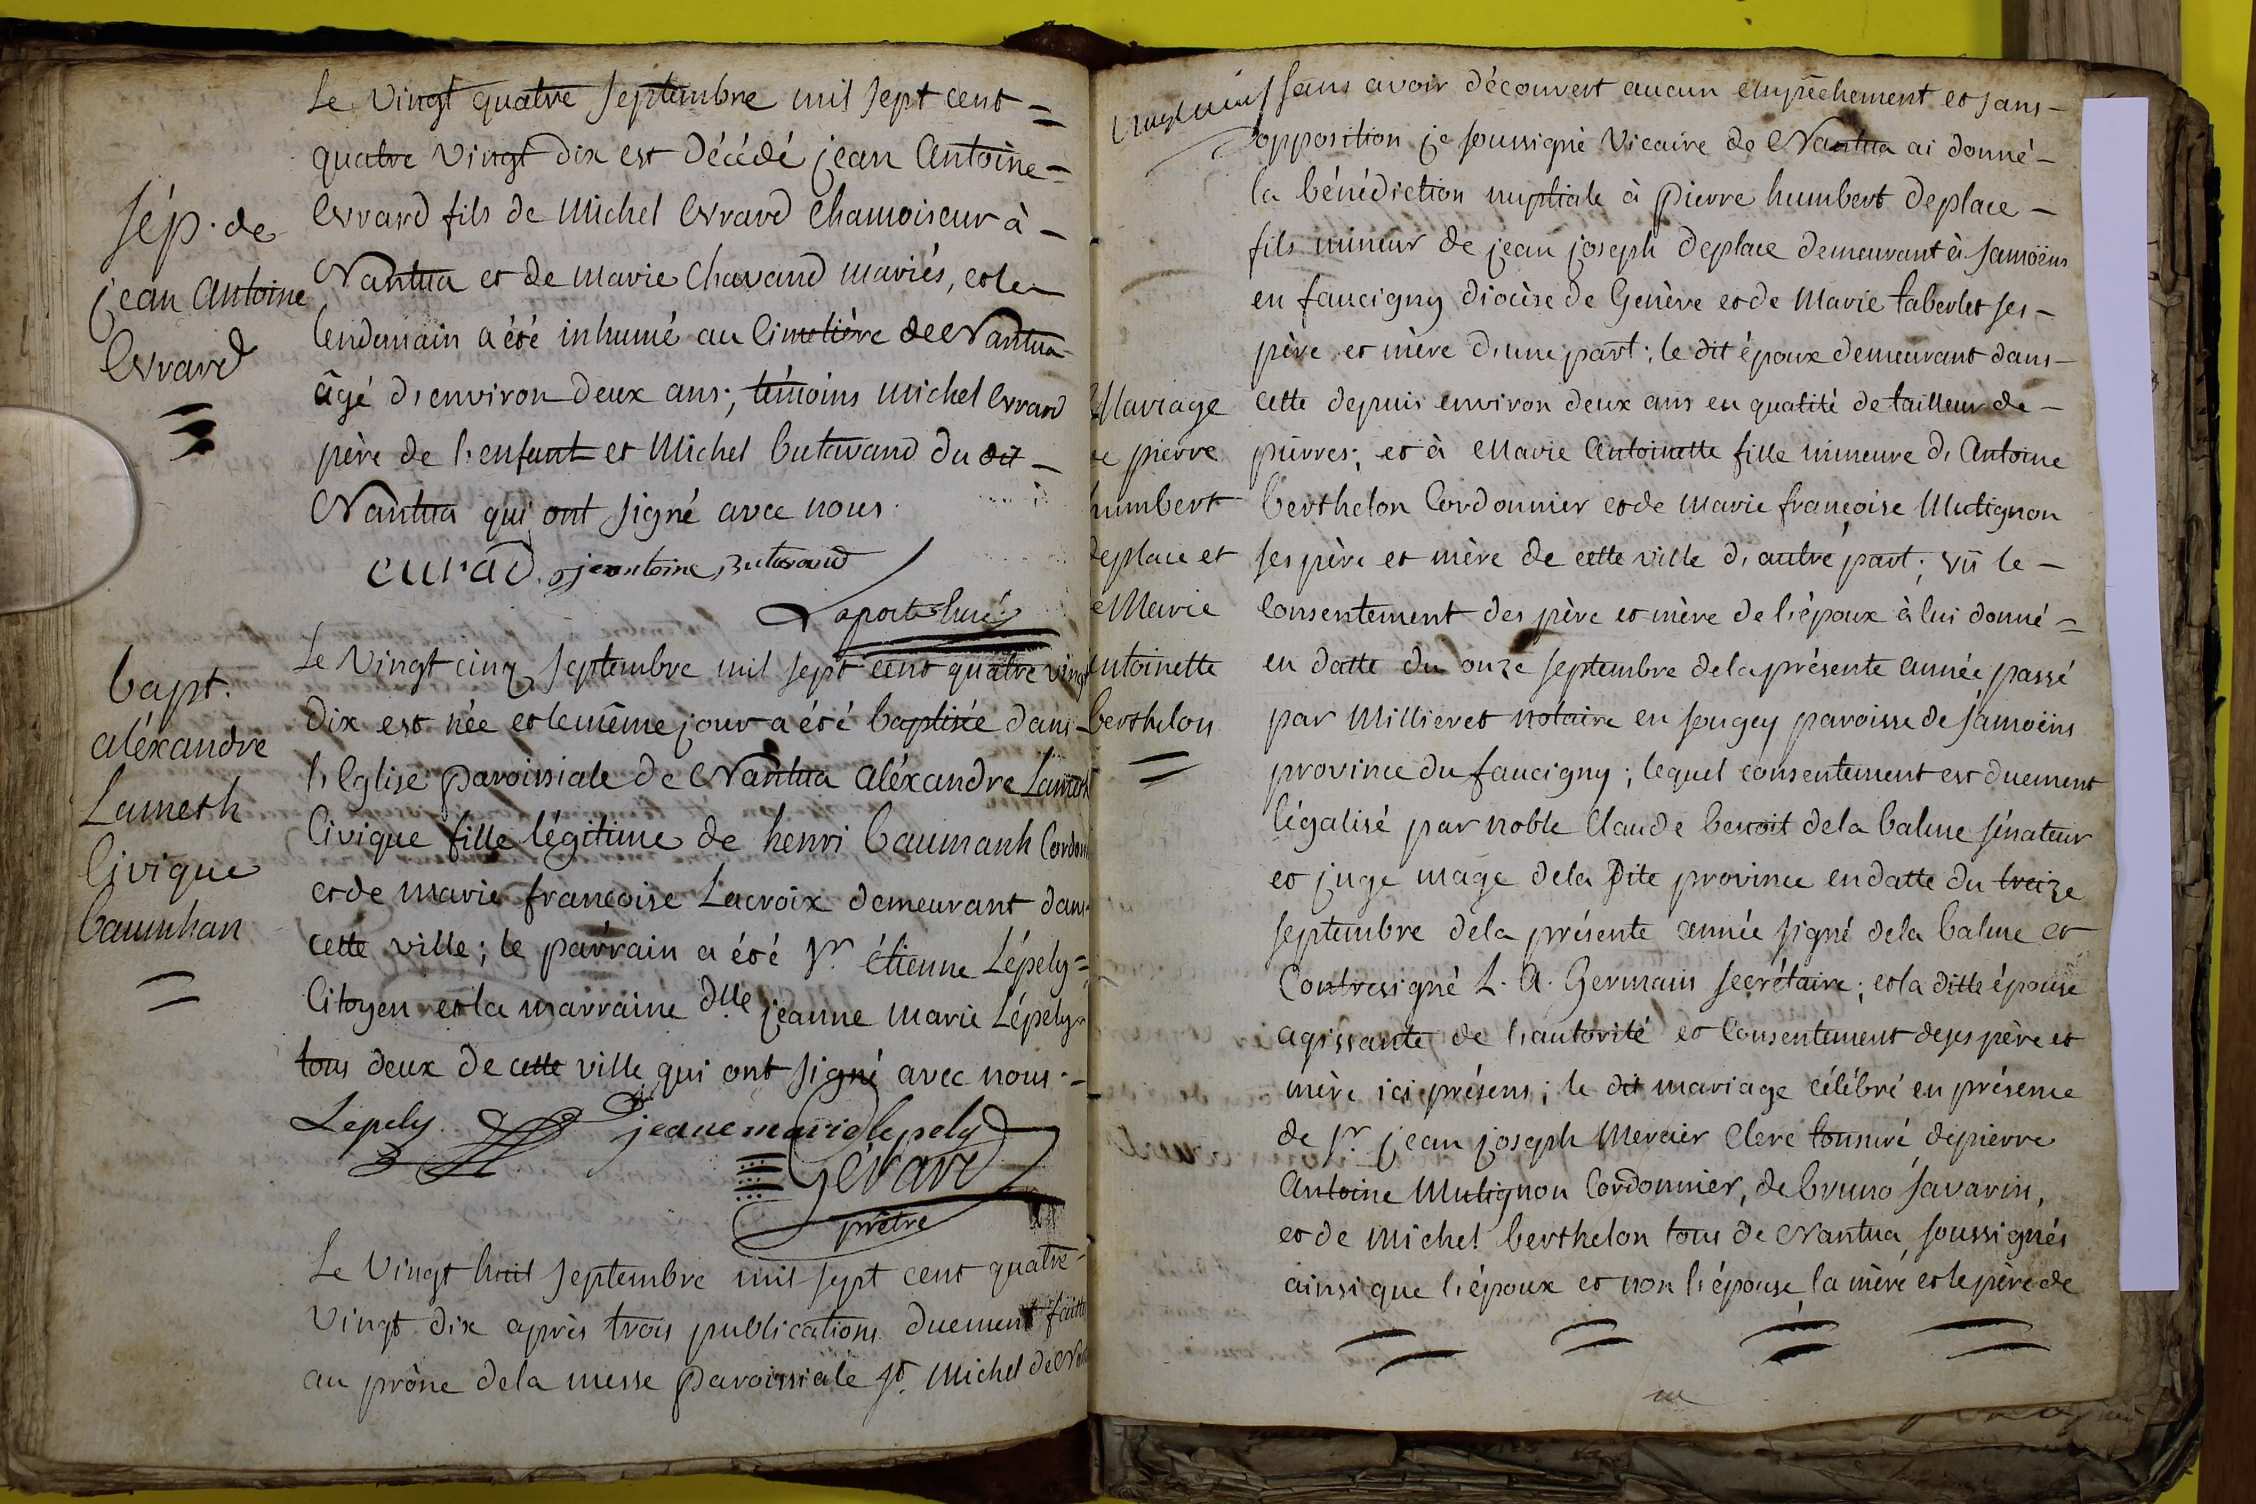 Sép. de
jean Antoine
Evrard
Le vingt quatre septembre mil sept cent =
quatre vingt dix est Décédé jean Antoine =
Evrard fils de Michel Evrard chamoiseur à -
Nantua et de marie Chavand mariés, et le -
lendemain a été inhumé au Cimetière de Nantua
âgé d'environ deux ans; témoins michel Evrard
père de l'enfant et Michel butavand du dit -
Nantua qui ont signé avec nous.
Laporte Curé
bapt.
aléxandre
Lameth
Civique
baumhan
Le vingt cinq septembre mil sept cent quatre vingt
dix est née et le même jour a été baptisée dans -
l'Eglise paroissiale de Nantua aléxandre Lameth
Civique fille légitime de henri baumanh Cordon
et de marie françoise Lacroix demeurant dans
cette ville; le parrain a été Sr. étienne Lépely =
Citoyen et la marraine dlle jeanne marie Lépely
tous deux de cette ville qui ont signé avec nous. -
Lepely jeane marie lepely
Gérard
prêtre
Le vingt huit septembre mil sept cent quatre -
vingt dix après trois publications duement faittes
au prône de la messe paroissiale St. Michel de
vingt neuf
Mariage
de pierre
humbert
deplace et
Marie
antoinette
berthelon
sans avoir découvert aucun empêchement et sans -
opposition je soussigné Vicaire de Nantua ai donné -
la bénédiction nuptiale à pierre humbert deplace -
fils mineur de jean joseph deplace demeurant à Samoëns
en faucigny diocèse de Genève et de Marie taberlet ses -
père et mère d'une part; le dit époux demeurant dans -
cette depuis environ deux ans en qualité de tailleur de -
pierres; et à Marie Antoinette fille mineure d'Antoine
berthelon Cordonnier et de marie françoise Mutignon
ses père et mère de cette ville d'autre part; vû le -
Consentement des père et mère de l'époux à lui donné =
en datte du onze septembre de la présente année passé
par Millieret notaire en sougey paroisse de samoëns
province du faucigny; lequel consentement est duement
légalisé par noble Claude benoit de la balme sénateur
et juge mage de la Dite province en datte du treize
septembre de la présente année signé de la balme et
Contresigné L. A. Germain secrétaire; et la ditte épouse
agissante de l'autorité et Consentement de ses père et
mère ici présens; le dit mariage célébré en présence
de Sr. jean joseph Mercier Clerc tonsuré, de pierre
Antoine Mutignon Cordonnier, de bruno savarin,
et de michel berthelon tous de Nantua, soussignés
ainsi que l'époux et non l'épouse, la mère et le père de